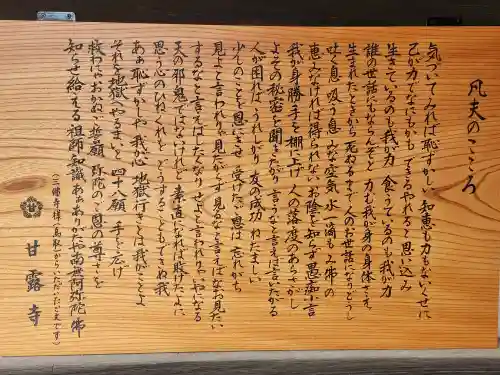 凡夫のこころ
気づいてみれば恥ずかしい 知恵も力もないくせに
己が力でなにもかも できるやれると思い込み
生きているのも我が力 食うているのも我が力
誰の世話にもならんぞと 力む我が身の身体さえ
生まれたときから死ぬるまで 人のお世話になりどうし
吐く息 吸う息 みな空気 水一滴もみ佛の
恵みなければ得られない お陰を知らず愚痴小言
我が身勝手を棚に上げ 人の落度のあらさがし
よその秘密を聞きたがり 言うなと言えば言いたがる
人が困ればうれしがり 友の成功ねたましい
少しのことを恩にきせ 受けた恩は忘れがち
見よと言われりゃ見たがらず 見るなと言えばなお見たい
するなと言えばしたくなり せよと言われりゃいやになる
天の邪鬼ではないけれど 素直になれば損のよに
思う心のひねくれを どうすることもできぬ我
あゝ恥ずかしや我が心 地獄行きとは我がことよ
それを地獄へやるまいと 四十八願 手を広げ
救わにゃおかぬご誓願 弥陀のご恩の尊さを
知らせ給える祖師知識 あゝありがたや南無阿弥陀佛
(三勝寺様(鳥取)からいただいたことばです)
甘露寺